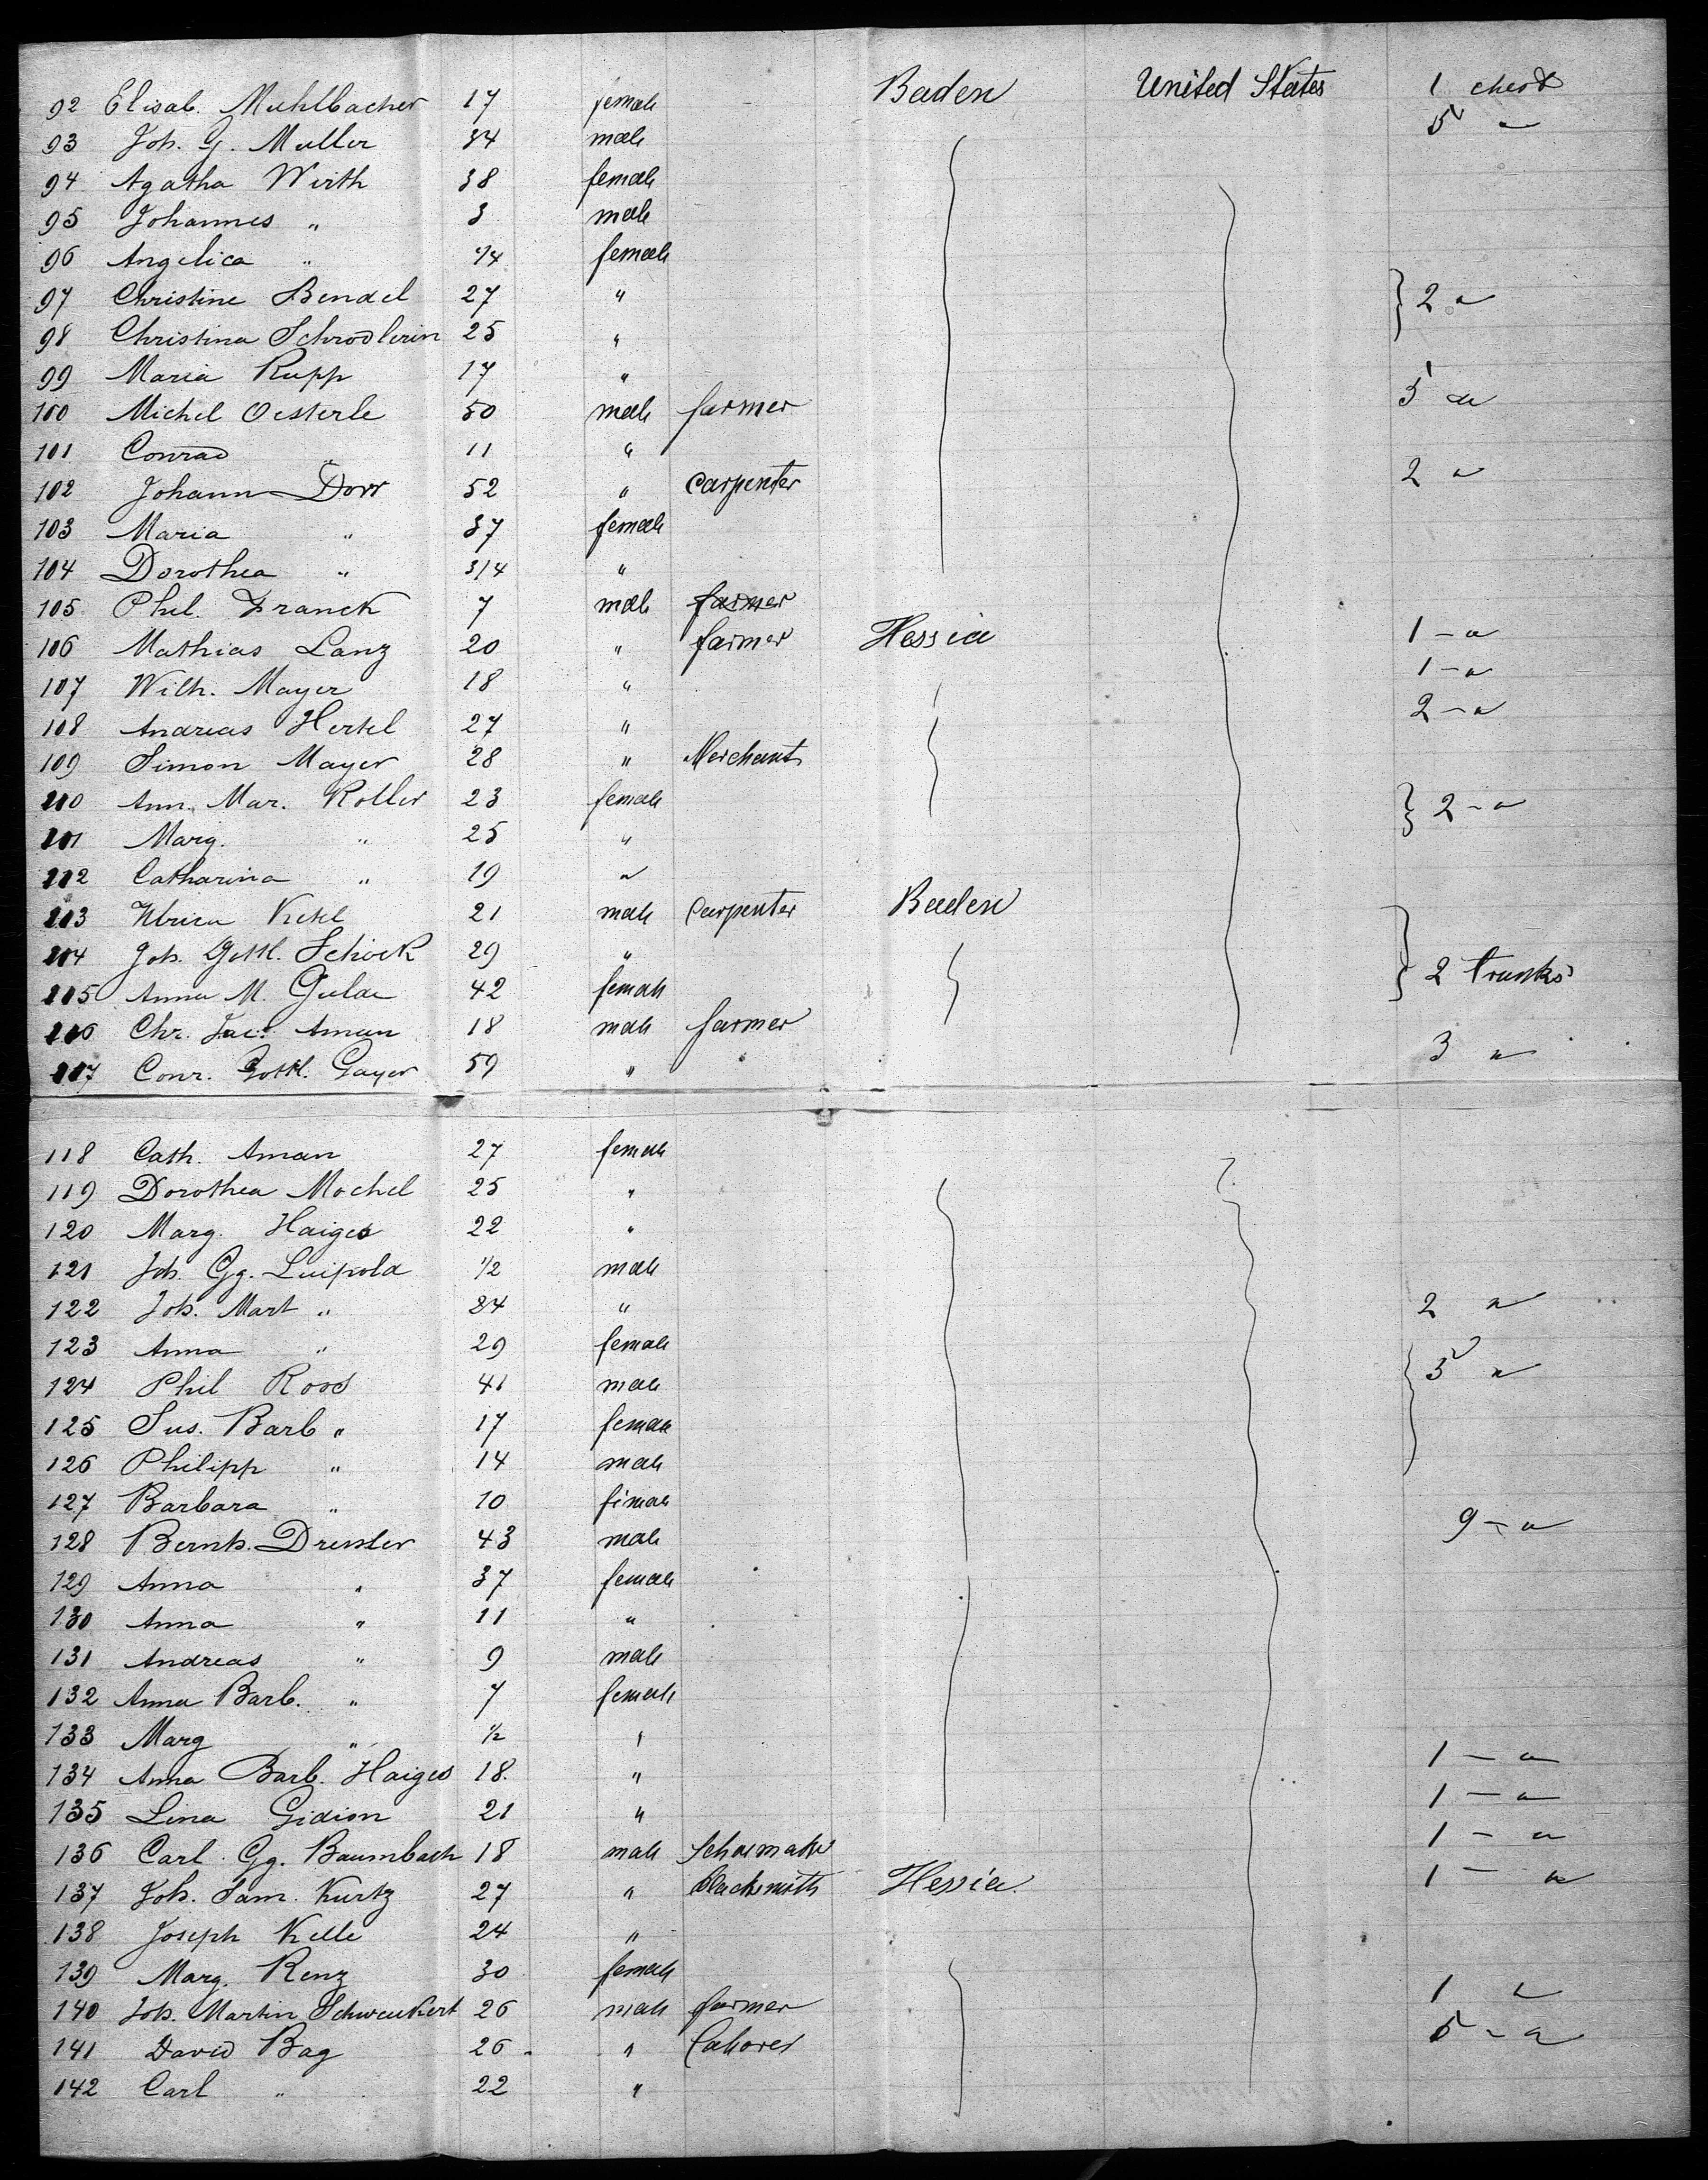 92 Elisab. Muhlbacher 17 female Baden United States 1 chest
93 Joh. G. Muller 34 male 5 "
94 Agatha Wirth 38 female
95 Johannes " 3 male
96 Angelica " 1/4 female
97 Christine Bendel 27 " } 2 "
98 Christina Schrodlerin 25 "
99 Maria Rupp 17 "
100 Michel Oesterle 50 male farmer 5 "
101 Conrad " 11 "
102 Johann Dorr 52 " Carpenter 2 "
103 Maria " 37 female
104 Dorothea " 3/4 "
105 Phil. Franck 7 male farmer
106 Mathias Lanz 20 " farmer Hessia 1 - "
107 Wilh. Mayer 18 " 1 - "
108 Andreas Hertel 27 " 2 - "
109 Simon Mayer 28 " Merchant
110 Ann. Mar. Roller 23 female } 2 - "
111 Marg. " 25 "
112 Catharina " 19 "
113 21 male Carpenter Baden
114 Joh. Gottl. Schock 29 " } 2 trunks
115 Anna M. 42 female
116 Chr. Jac. Aman 18 male farmer
117 Conr. Gottl. Gayer 59 " 3 "
118 Cath. Aman 27 female
119 Dorothea Mochel 25 "
120 Marg. Haiges 22 "
121 Joh. Gg. Luipold 1/2 male
122 Joh. Mart " 24 " 2 "
123 Anna " 29 female
124 Phil Roos 41 male } 5 "
125 Sus. Barb " 17 female
126 Philipp " 14 male
127 Barbara " 10 female
128 Bernh. Dressler 43 male 9 - "
129 Anna " 37 female
130 Anna " 11 "
131 Andreas " 9 male
132 Anna Barb. " 7 female
133 Marg " 1/2 "
134 Anna Barb. Haiges 18. " 1 - "
135 Lina Gidion 21 " 1 - "
136 Carl Gg. Baumbach 18 male Schumaker 1 - "
137 Joh. Sam. Kurtz 27 " blacksmith Hessia. 1 - "
138 Joseph Kelle 24 "
139 Marg. Renz 30 female
140 Joh. Martin Schweukert 26 male farmer 1 "
141 David Bag 26 " Laborer 5 - "
142 Carl " 22 "